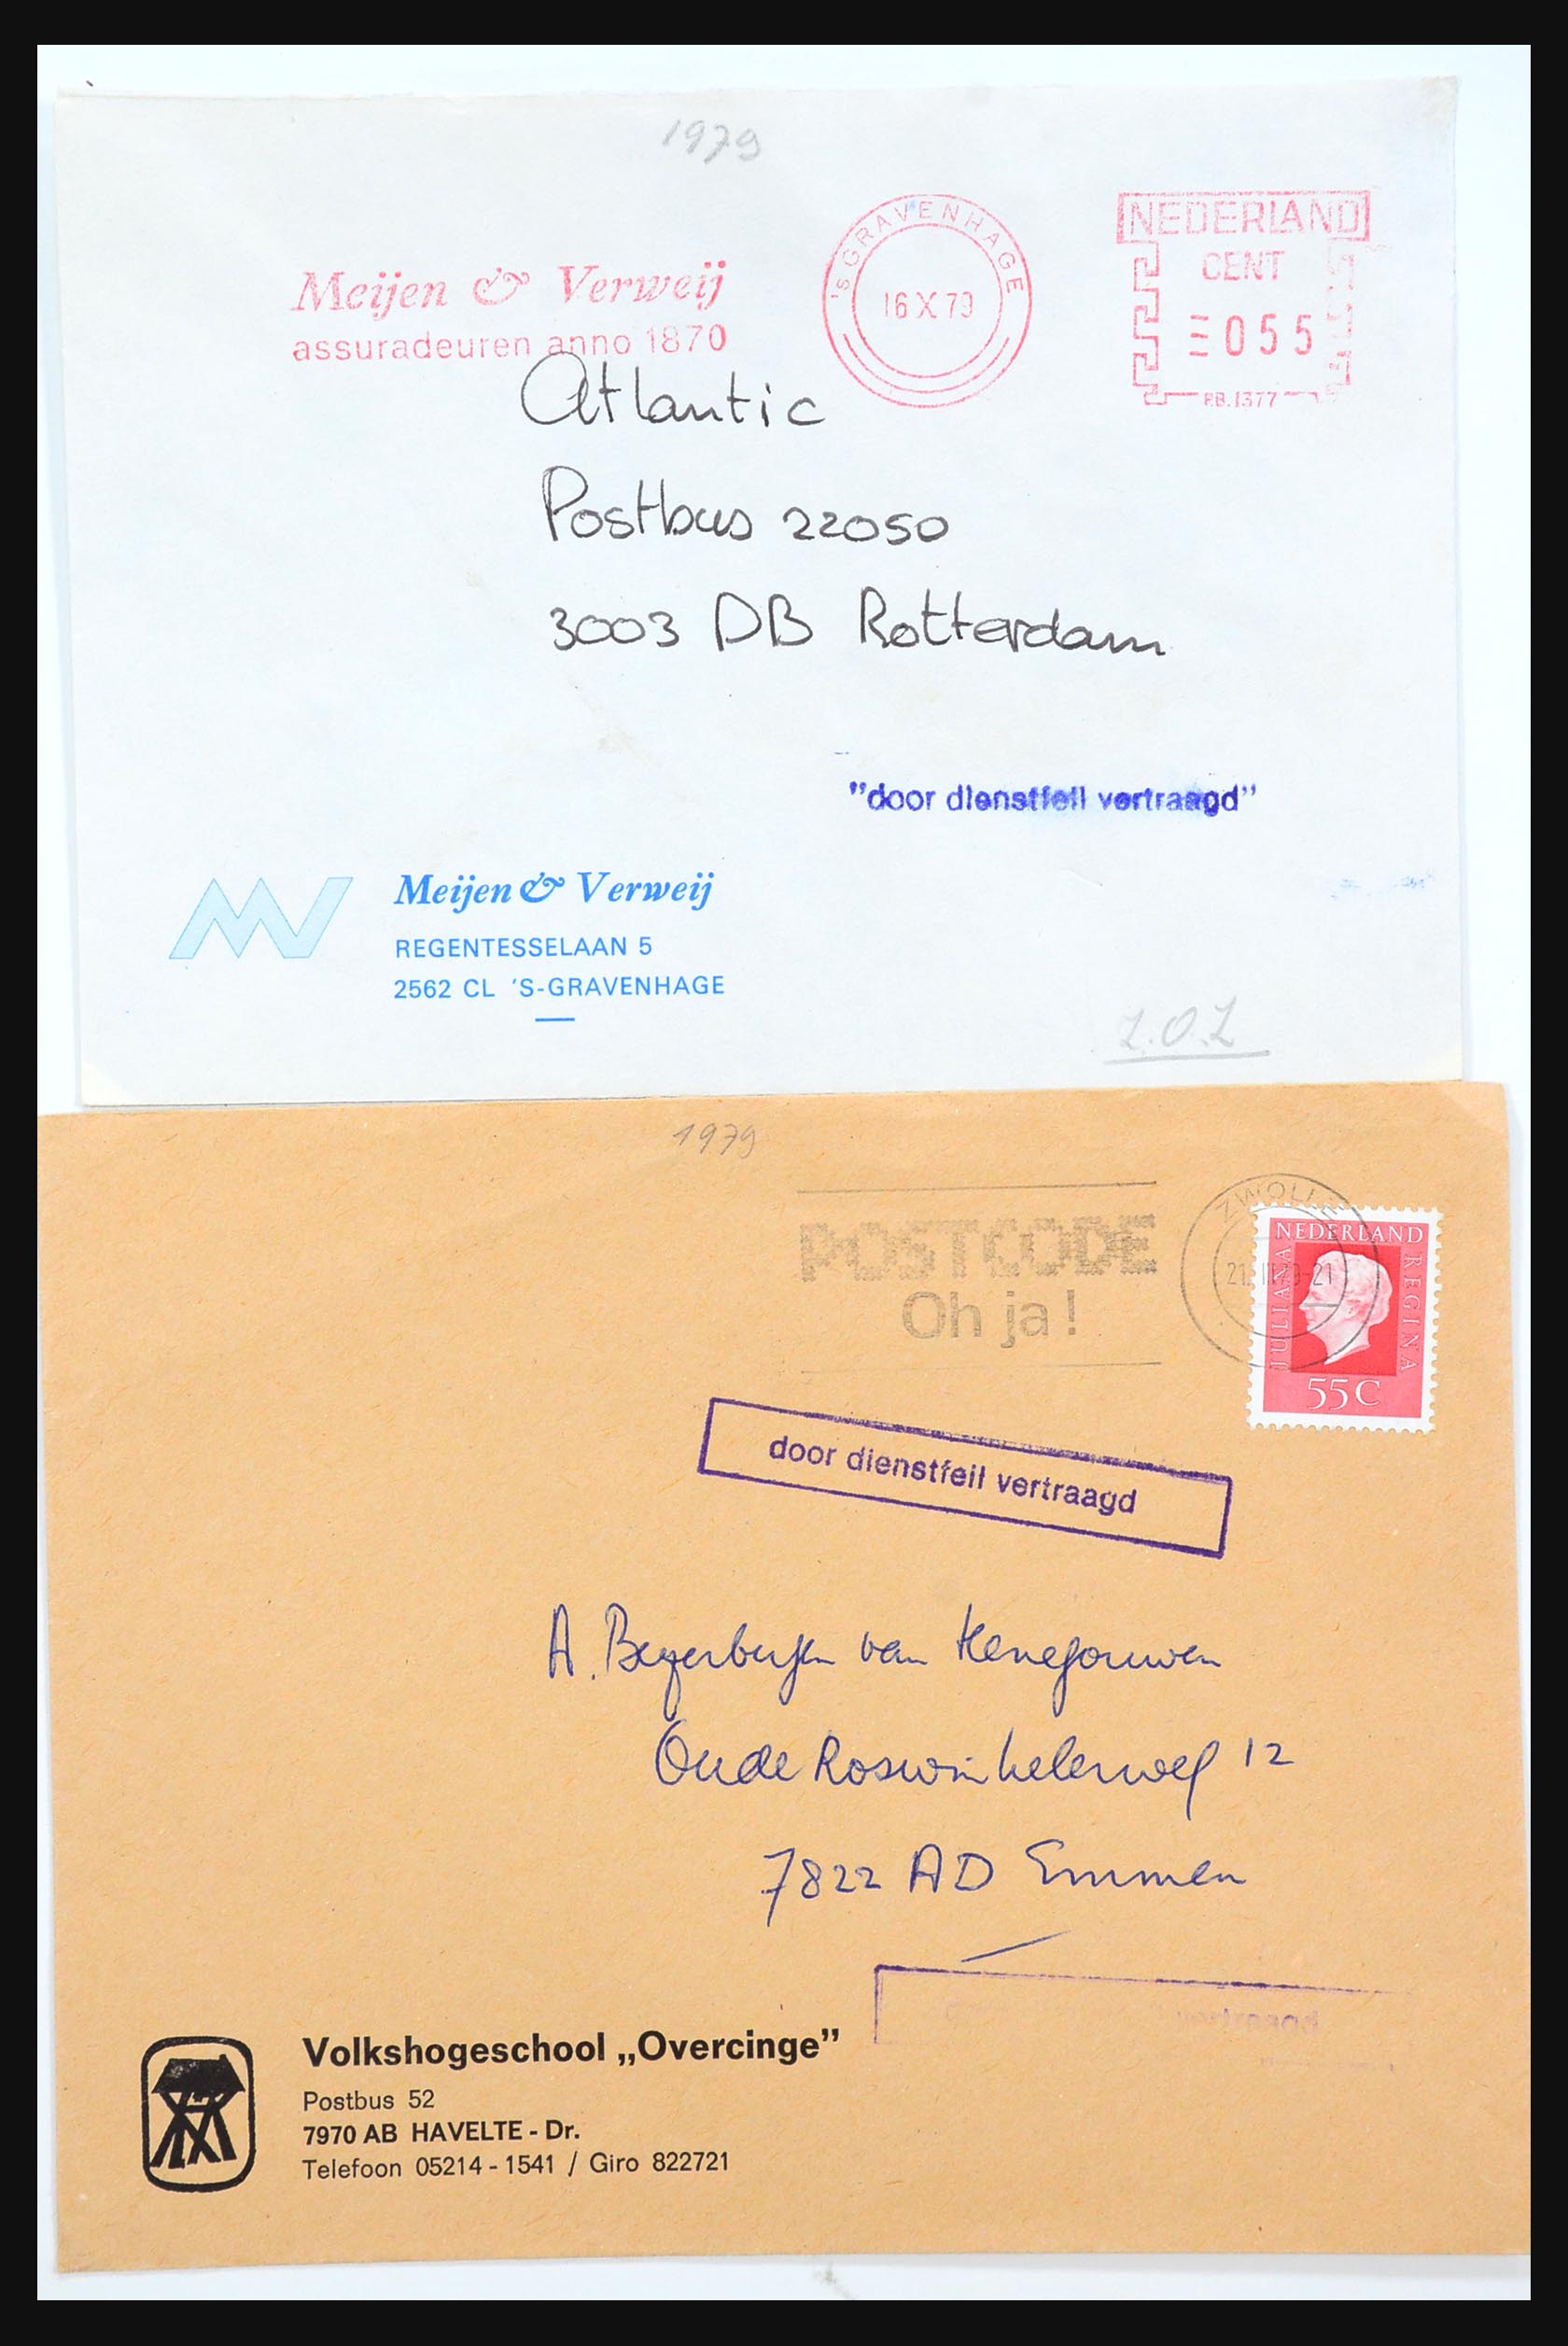 1979
'S GRAVENHAGE
16 X 79
NEDERLAND
CENT
055
P.B. 1377
Meijen & Verweij
assuradeuren anno 1870
Atlantic
Postbus 22050
3003 DB Rotterdam
"door dienstfeil vertraagd"
Meijen & Verweij
REGENTESSELAAN 5
2562 CL 'S-GRAVENHAGE
Z.O.Z
1979
POSTCODE
Oh ja!
ZWOLLE
NEDERLAND
JULIANA
REGINA
55C
door dienstfeil vertraagd
A. Beyerbergen van Henegouwen
Oude Roswinkelerweg 12
7822 AD Emmen
Volkshogeschool „Overcinge”
Postbus 52
7970 AB HAVELTE - Dr.
Telefoon 05214 - 1541 / Giro 822721